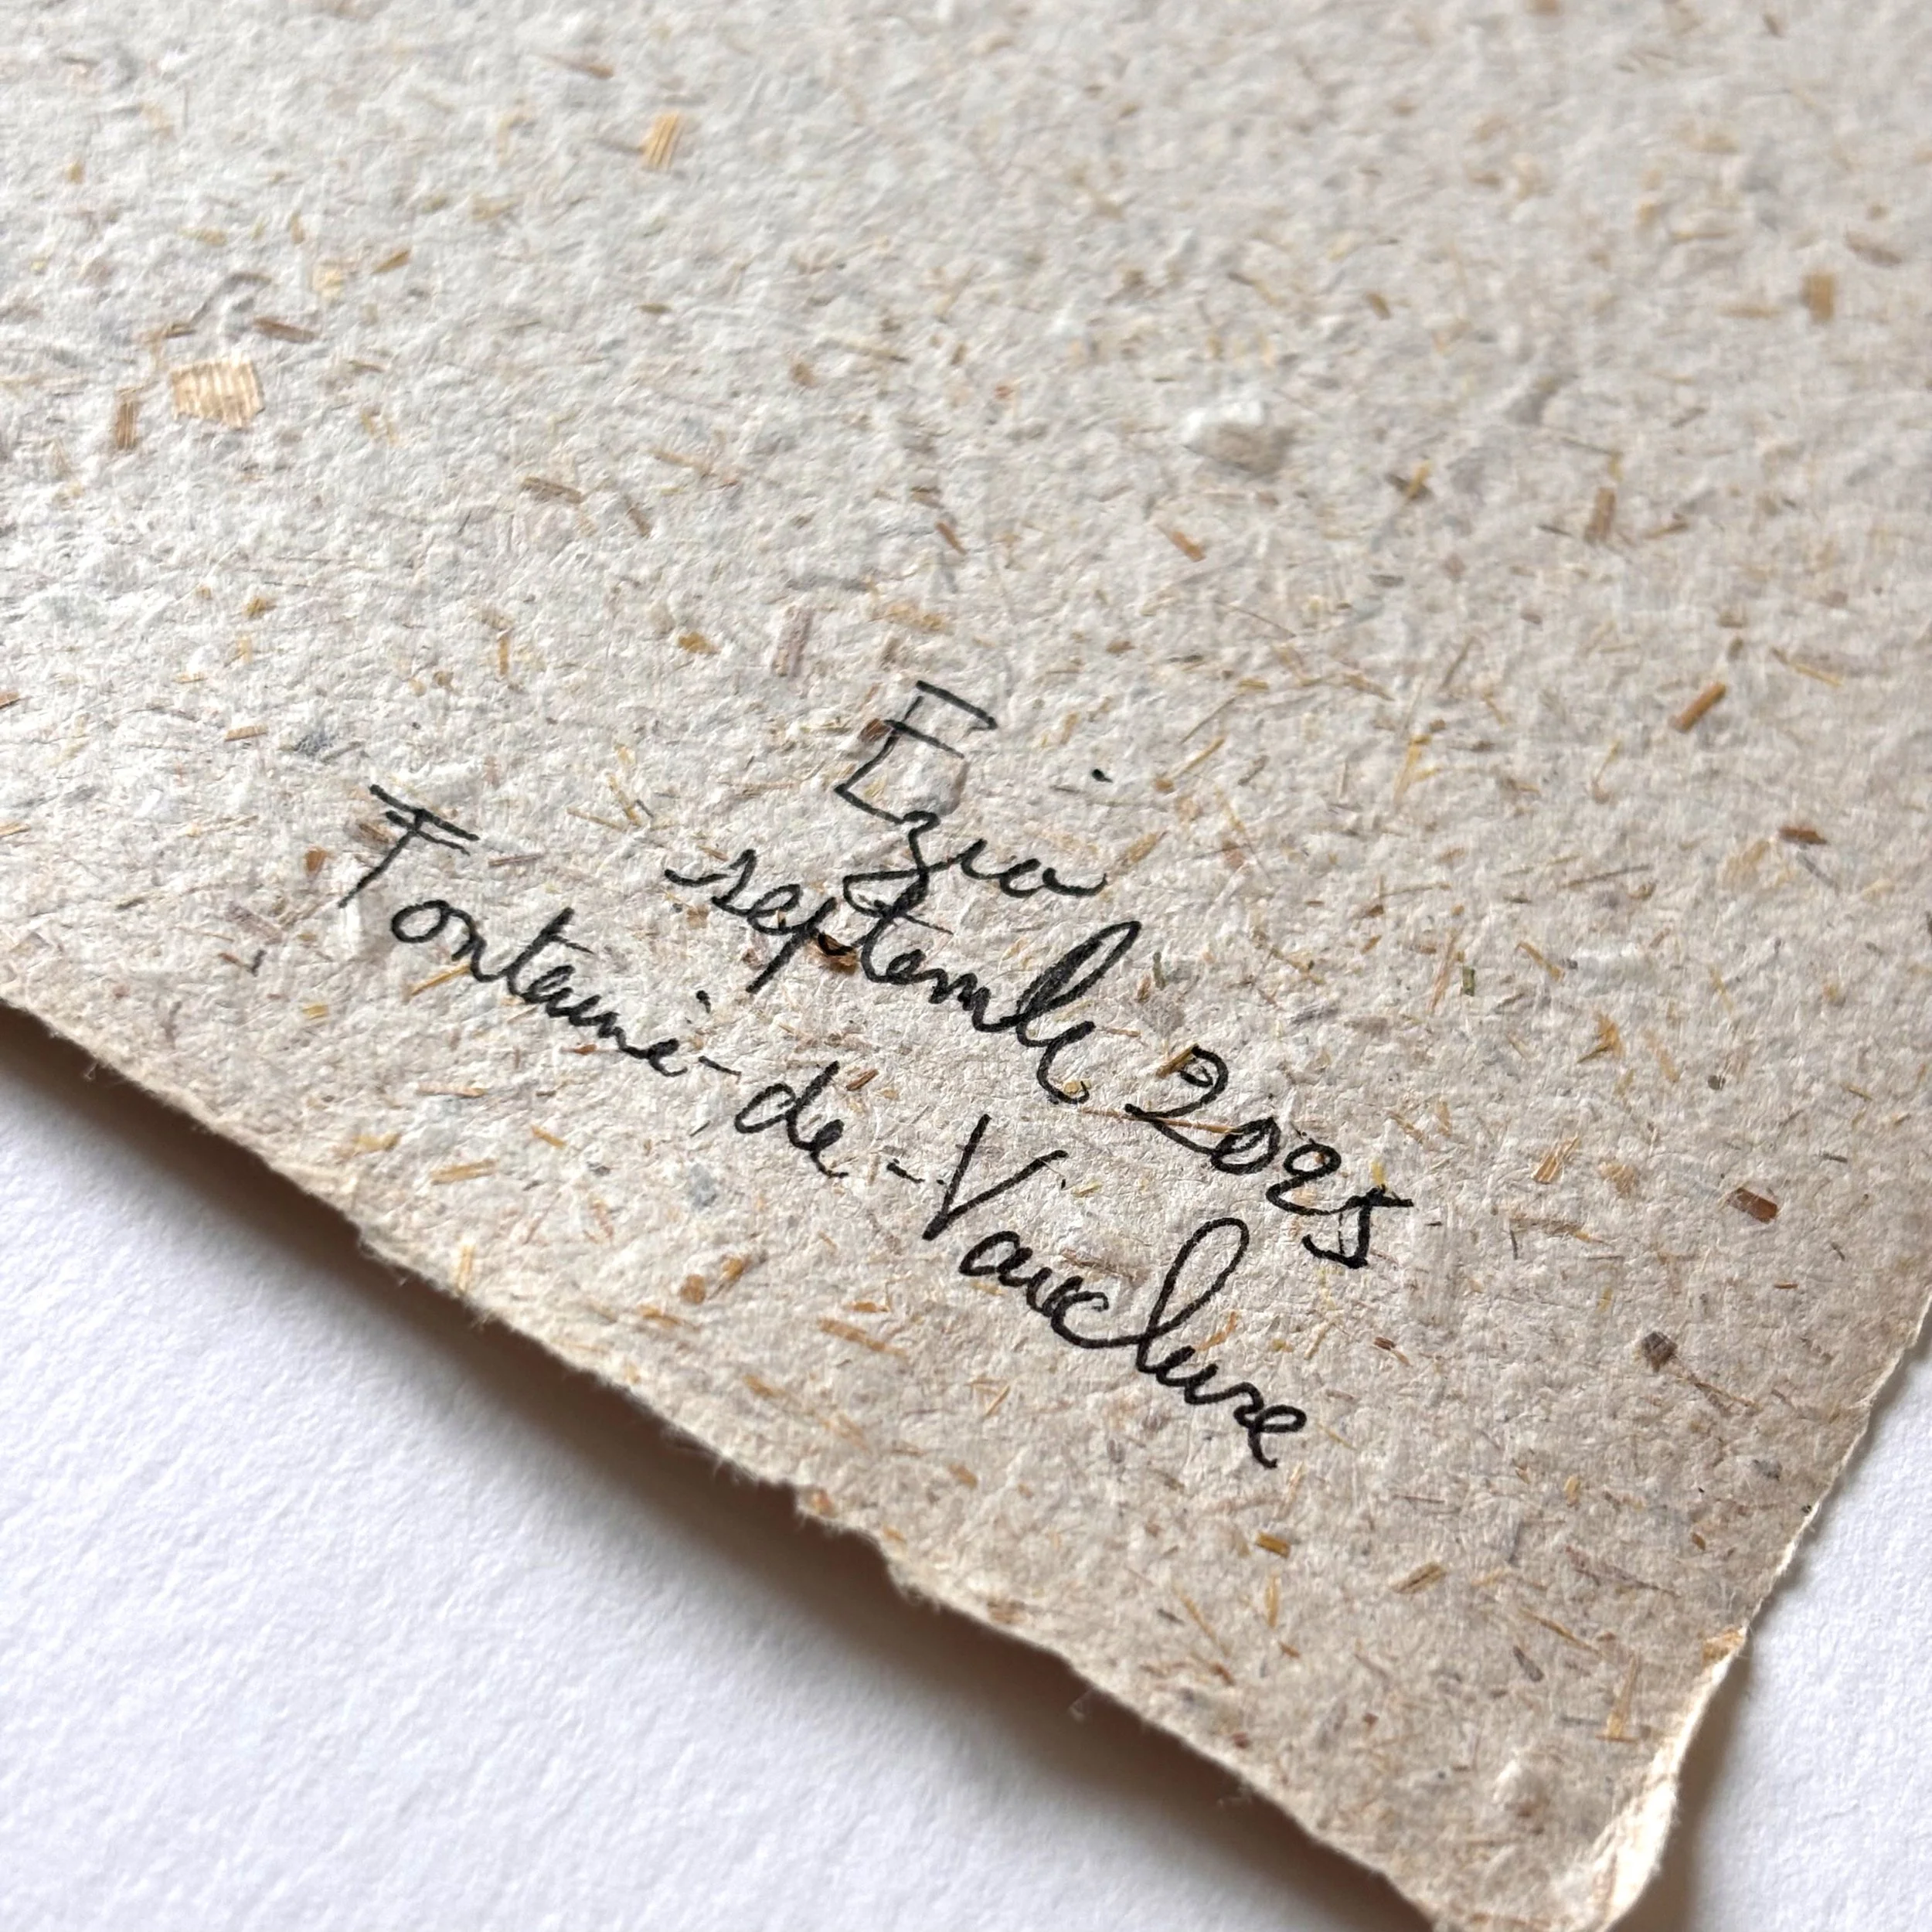 Ezio
septembre 2025
Fontaine-de-Vaucluse